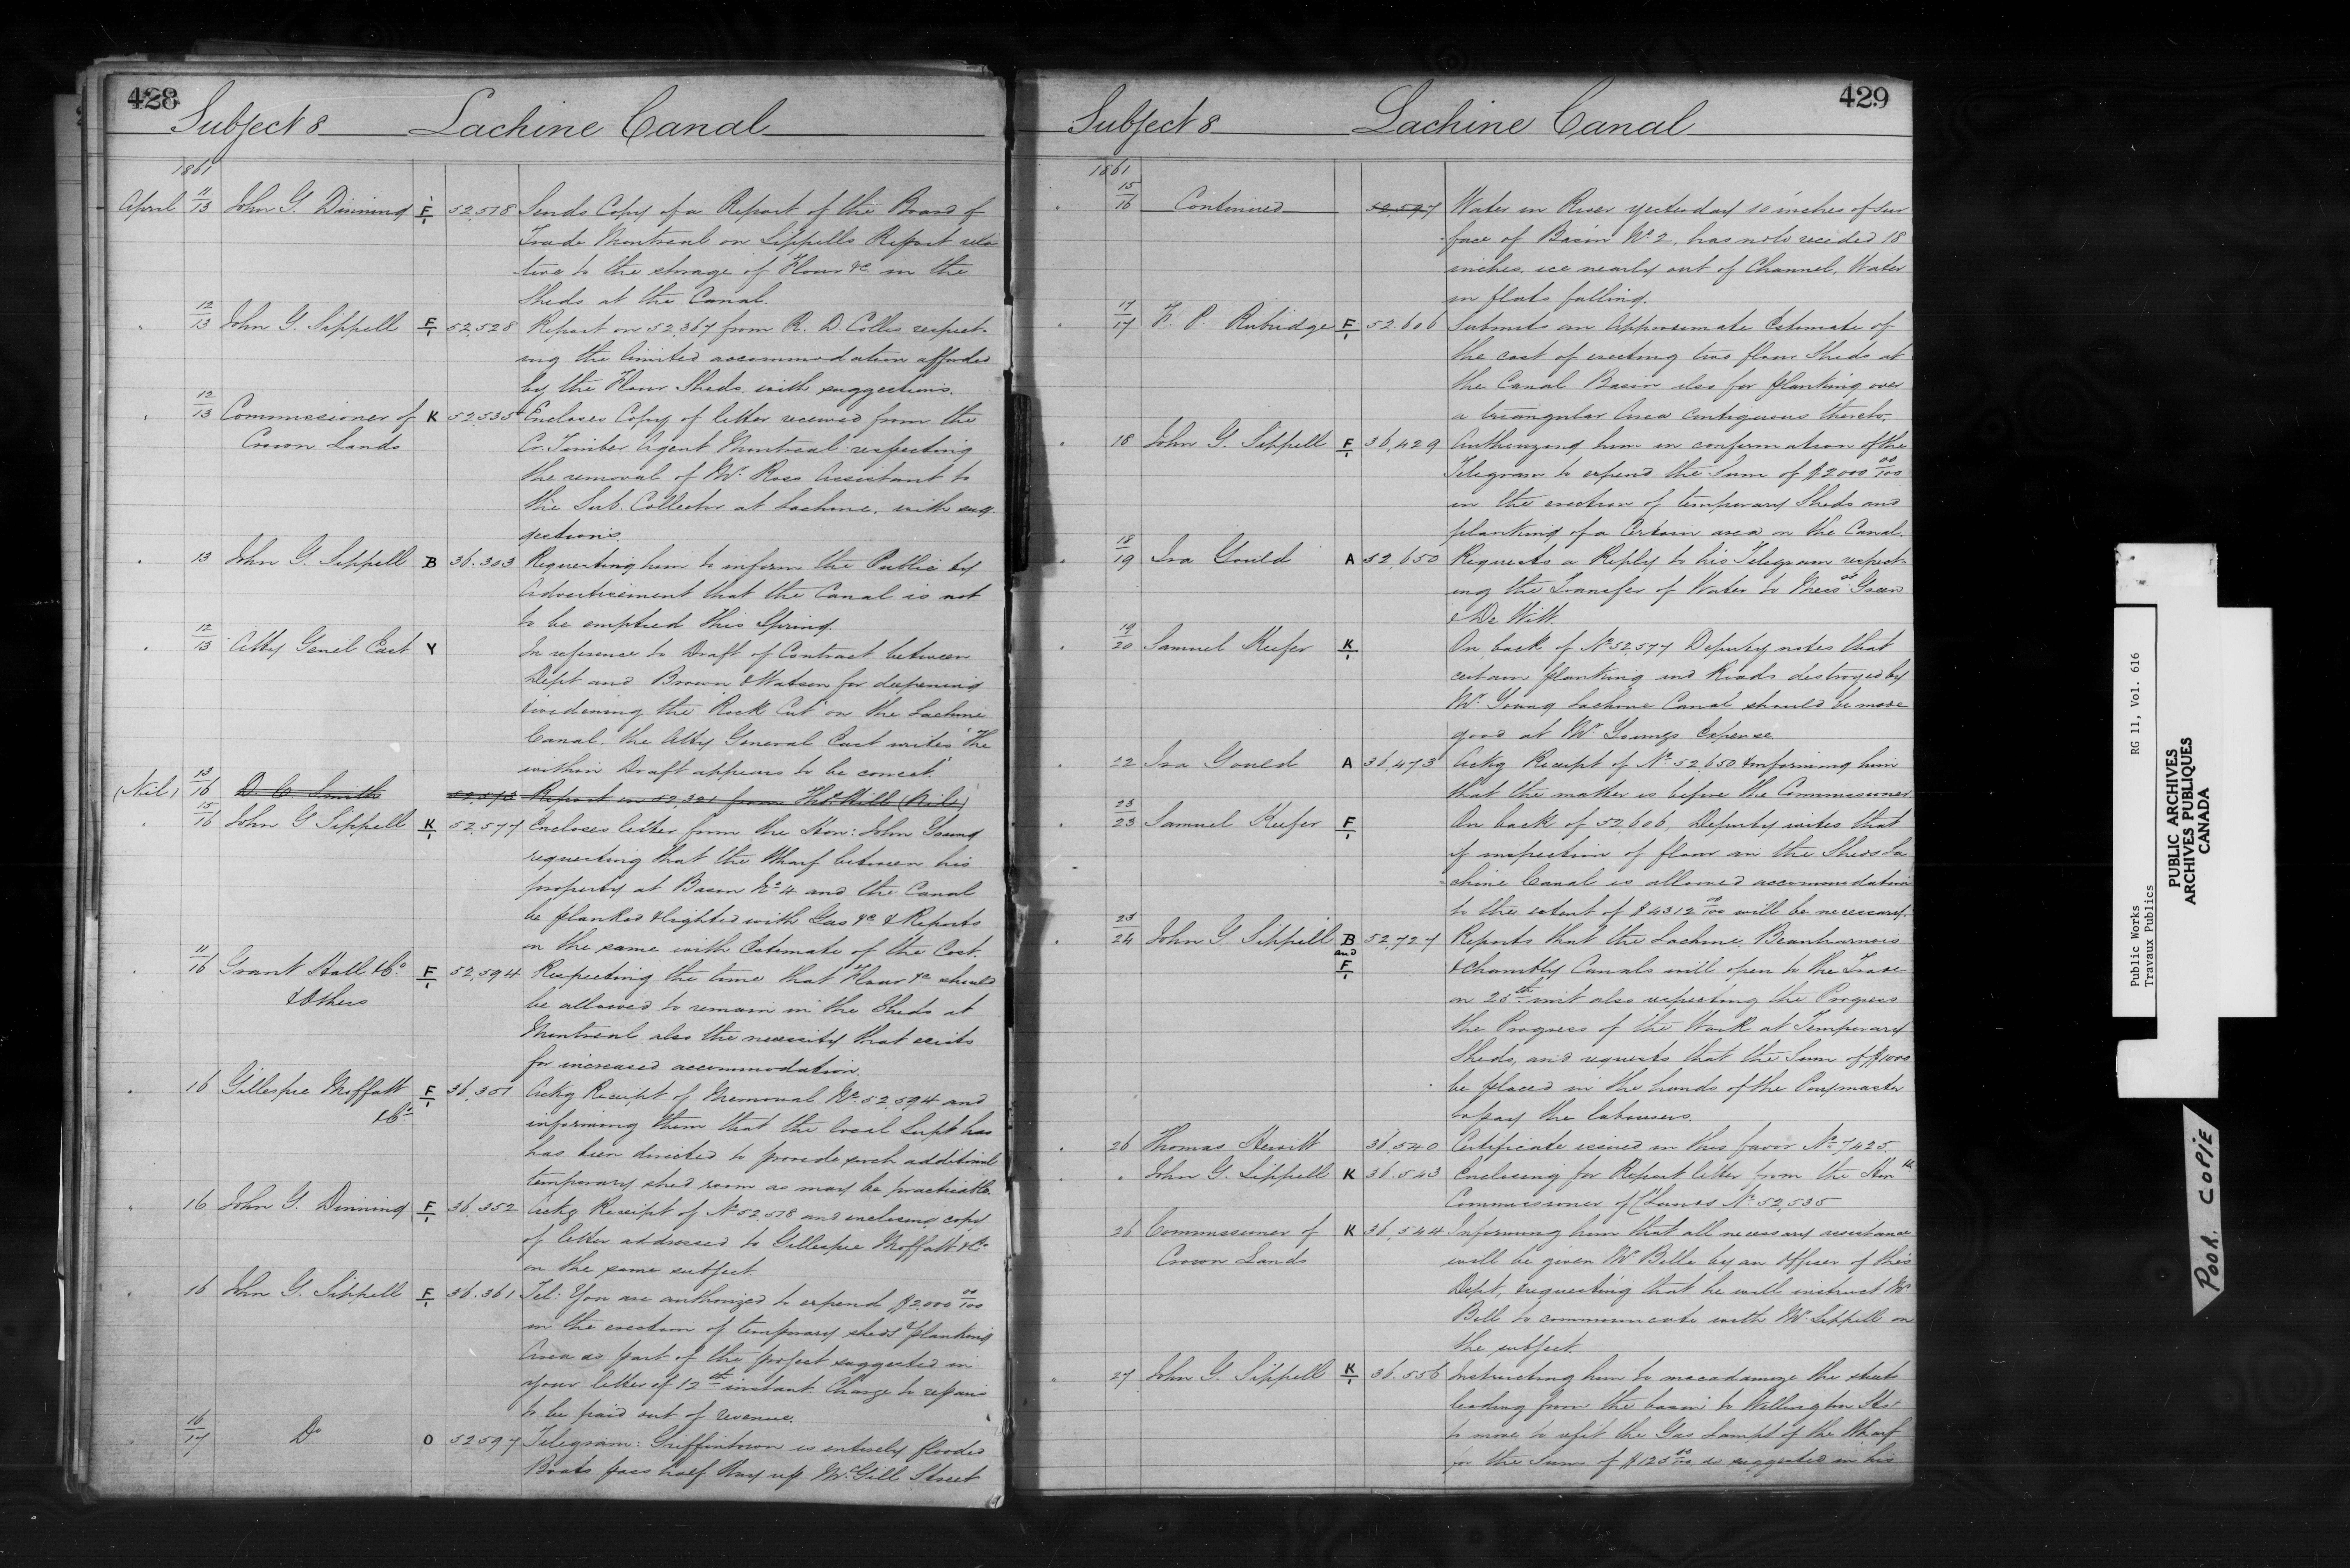 428
Subject 8 Lachine Canal
1861
April 11/13 John G. Dinning F/1 52,518 Sends Copy of a Report of the Board of
Trade Montreal on Sippells Report rela
tive to the storage of Flour &c in the
Sheds at the Canal.
" 12/13 John G. Sippell F/1 52,528 Report on 52,367 from R. D. Collis respect-
ing the limited accommodation afforded
by the Flour Sheds with suggestions.
" 12/13 Commissioner of K 52,535 Encloses Copy of letter received from the
Crown Lands Cr. Timber Agent Montreal respecting
the removal of Mr. Ross Assistant to
the Sub. Collector at Lachine, with sug
gestions.
" 13 John G. Sippell B 36.303 Requesting him to inform the Public by
Advertisement that the Canal is not
to be emptied this Spring.
" 12/13 Atty Genl East Y In reference to Draft of Contract between
Dept and Brown & Watson for deepening
& widening the Rock Cut on the Lachine
Canal, the Atty General East writes "the
within Draft appears to be correct."
(Nil) 13/16 D. C. Smith 52,573 Report on 52,321 from Thos. Hill (Nil)
" 15/16 John G Sippell K/1 52,577 Encloses letter from the Hon: John Young
requesting that the Wharf between his
property at Basin No. 4 and the Canal
be planked & lighted with Gas &c & Reports
on the same with Estimate of the Cost.
" 11/16 Grant Hall & Co. F/1 52,594 Respecting the time that Flour &c should
& Others be allowed to remain in the Sheds at
Montreal also the necessity that exists
for increased accommodation.
" 16 Gillespie Moffatt F/1 36,351 Ackg Receipt of Memorial No. 52,594 and
& Co. informing them that the local Supt has
has been directed to provide such additional
temporary shed room as may be practicable.
" 16 John G. Dinning F/1 36,352 Ackg Receipt of No. 52,518 and enclosing copy
of letter addressed to Gillespie Moffatt & Co.
on the same subject
" 16 John G. Sippell F/1 36.361 Tel: You are authorized to expend $2,000 00/100
in the erection of temporary sheds & planking
Area as part of the project suggested in
your letter of 12th instant Charge to repairs
to be paid out of revenue.
16/17 Do O 52597 Telegram: Griffintown is entirely flooded
Boats pass half way up McGill Street
429
Subject 8 Lachine Canal
1861
" 15/16 Continued 52,597 Water in River yesterday 10 inches of sur
face of Basin No. 2, has not receded 18
inches, ice nearly out of Channel, Water
in flats falling.
" 17/17 F. P. Rubidge F/1 52606 Submits an Approximate Estimate of
the cost of erecting two flour Sheds at
the Canal Basin also for planking over
a triangular Area Contiguous thereto.
" 18 John G. Sippell F/1 36,429 Authorizing him in confirmation of the
Telegram to expend the Sum of $2000 00/100
in the erection of temporary Sheds and
planking of a Certain area on the Canal.
" 18/19 Ira Gould A 52,650 Requests a Reply to his Telegram respect-
ing the Transfer of Water to Messrs Green
& De Witt.
" 19/20 Samuel Keefer K/1 On back of No. 52,577 Deputy notes that
certain planking and Roads destroyed by
Mr. Young Lachine Canal should be made
good at Mr. Youngs Expense.
" 22 Ira Gould A 36,473 Ackg Receipt of No. 52,650 & informing him
that the matter is before the Commissioner
" 23/23 Samuel Keefer F/1 On back of 52606, Deputy writes that
if inspection of flour in the Sheds La
chine Canal is allowed accommodation
to the extent of $4312 00/100 will be necessary.
" 23/24 John G. Sippell B and F/1 52,727 Reports that the Lachine, Beauharnois
& Chambly Canals will open to the Trade
on 25th inst also respecting the Progress
the Progress of the Work at Temporary
Sheds, and requests that the Sum of $1000
be placed in the hands of the Paymaster
to pay the labourers.
" 26 Thomas Hewitt 36,540 Certificate issued in this favor No. 7425
" " John G. Sippell K 36.543 Enclosing for Report letter from the Hon
Commissioner of C. Lands No. 52,535
26 Commissioner of K 36,544 Informing him that all necessary assistance
Crown Lands will be given Mr. Belle by an Officer of this
Dept, & requesting that he will instruct Mr
Bell to communicate with Mr. Sippell on
the subject.
" 27 John G. Sippell K/1 36.556 Instructing him to macadamize the streets
leading from the basin to Wellington St.
to move to refit the Gas Lamps of the Wharf
for the Sum of $125 00/100 as suggested in his
Public Works RG 11, Vol. 616
Travaux Publics
PUBLIC ARCHIVES
ARCHIVES PUBLIQUES
CANADA
POOR. COPIE